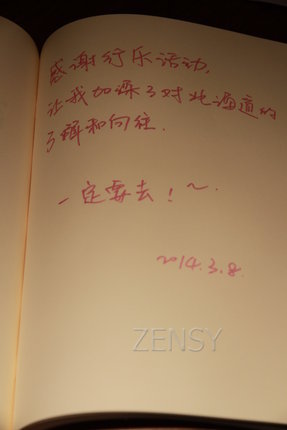 感谢行乐活动,
让我加深了对北海道的
了解和向往.
一定要去！～.
2014.3.8.
ZENSY